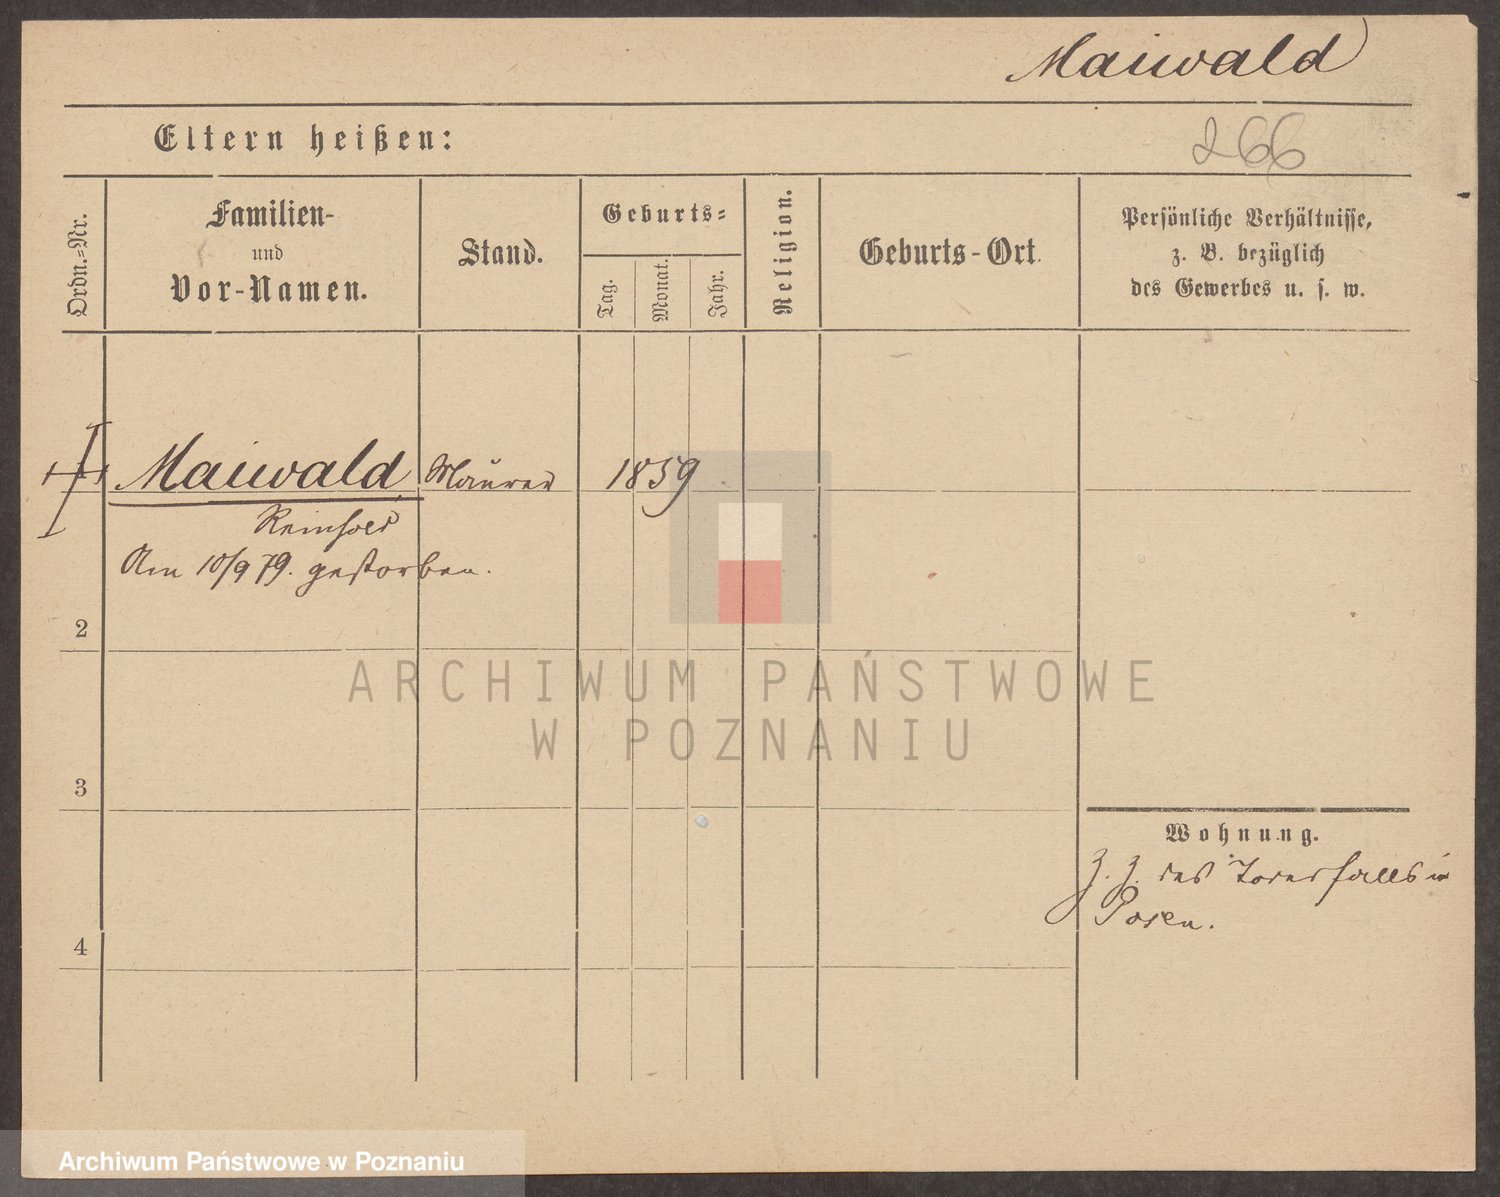 Maiwald
Eltern heißen:
266
Ordn.-Nr.
Familien-
und
Vor-Namen.
Stand.
Geburts-
Tag.
Monat.
Jahr.
Religion.
Geburts-Ort.
Persönliche Verhältnisse,
z. B. bezüglich
des Gewerbes u. s. w.
Maiwald Maurer 1859
Reinhold
Am 10/9 79. gestorben.
2
ARCHIWUM PAŃSTWOWE
W POZNANIU
3
Wohnung.
z. Z. des Todesfalls in
Posen.
4
Archiwum Państwowe w Poznaniu